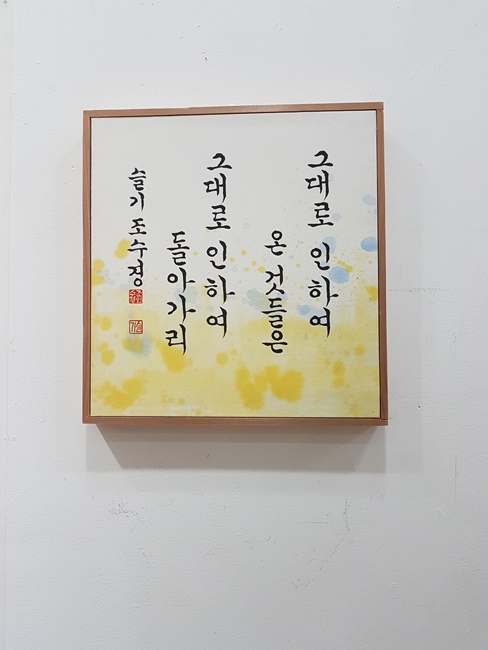 그대로 인하여
온 것들은
그대로 인하여
돌아가리
슬기 조수정